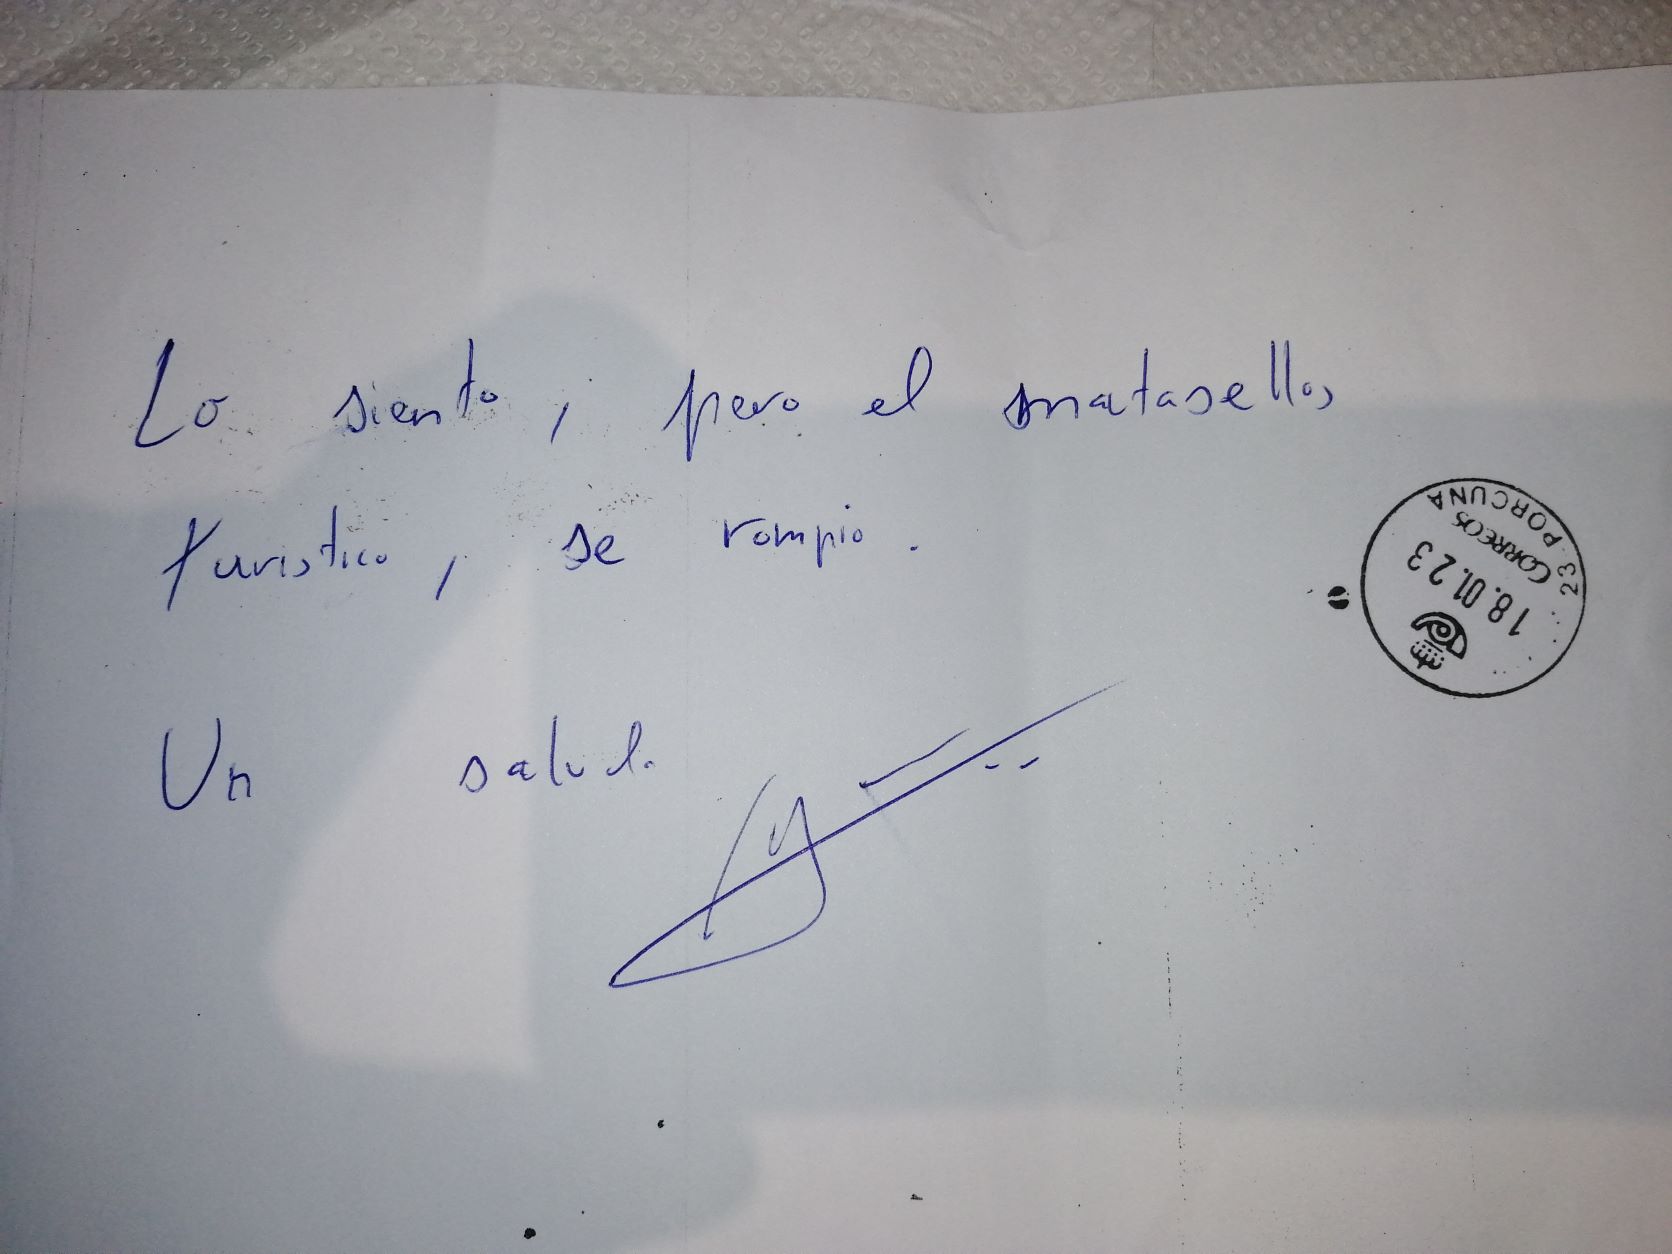 Lo siento, pero el matasellos
turistico, se rompio.
Un saludo
23 PORCUNA
CORREOS
18.01.23